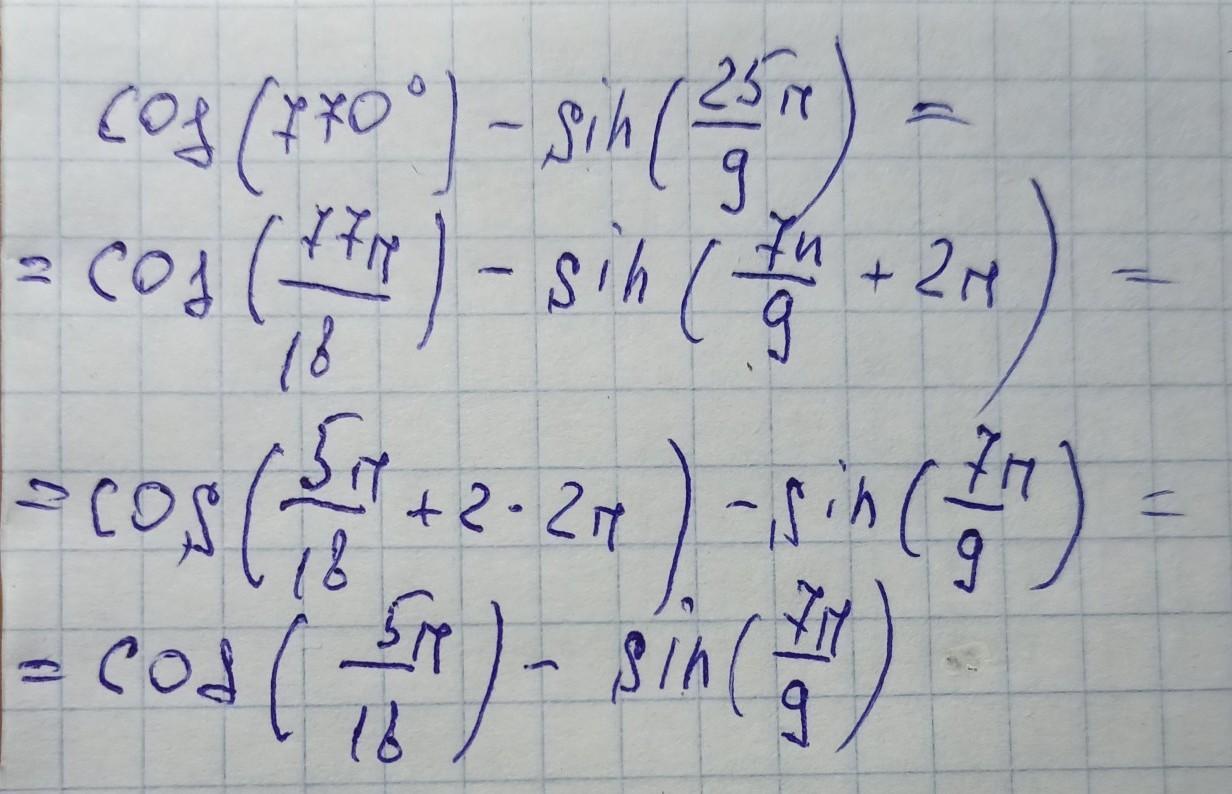 cos(770°) - sin(25π/9) =
= cos(77π/18) - sin(7π/9 + 2π) =
= cos(5π/18 + 2·2π) - sin(7π/9) =
= cos(5π/18) - sin(7π/9)